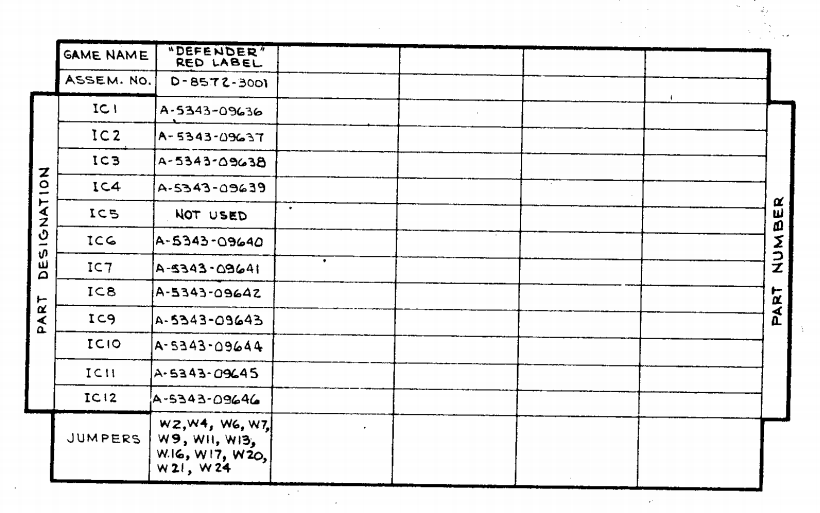 GAME NAME "DEFENDER" RED LABEL
ASSEM. NO. D-8572-3001
PART DESIGNATION
IC1 A-5343-09636
IC2 A-5343-09637
IC3 A-5343-09638
IC4 A-5343-09639
IC5 NOT USED
IC6 A-5343-09640
IC7 A-5343-09641
IC8 A-5343-09642
IC9 A-5343-09643
IC10 A-5343-09644
IC11 A-5343-09645
IC12 A-5343-09646
PART NUMBER
JUMPERS
W2,W4, W6, W7,
W9, W11, W13,
W16, W17, W20,
W21, W24